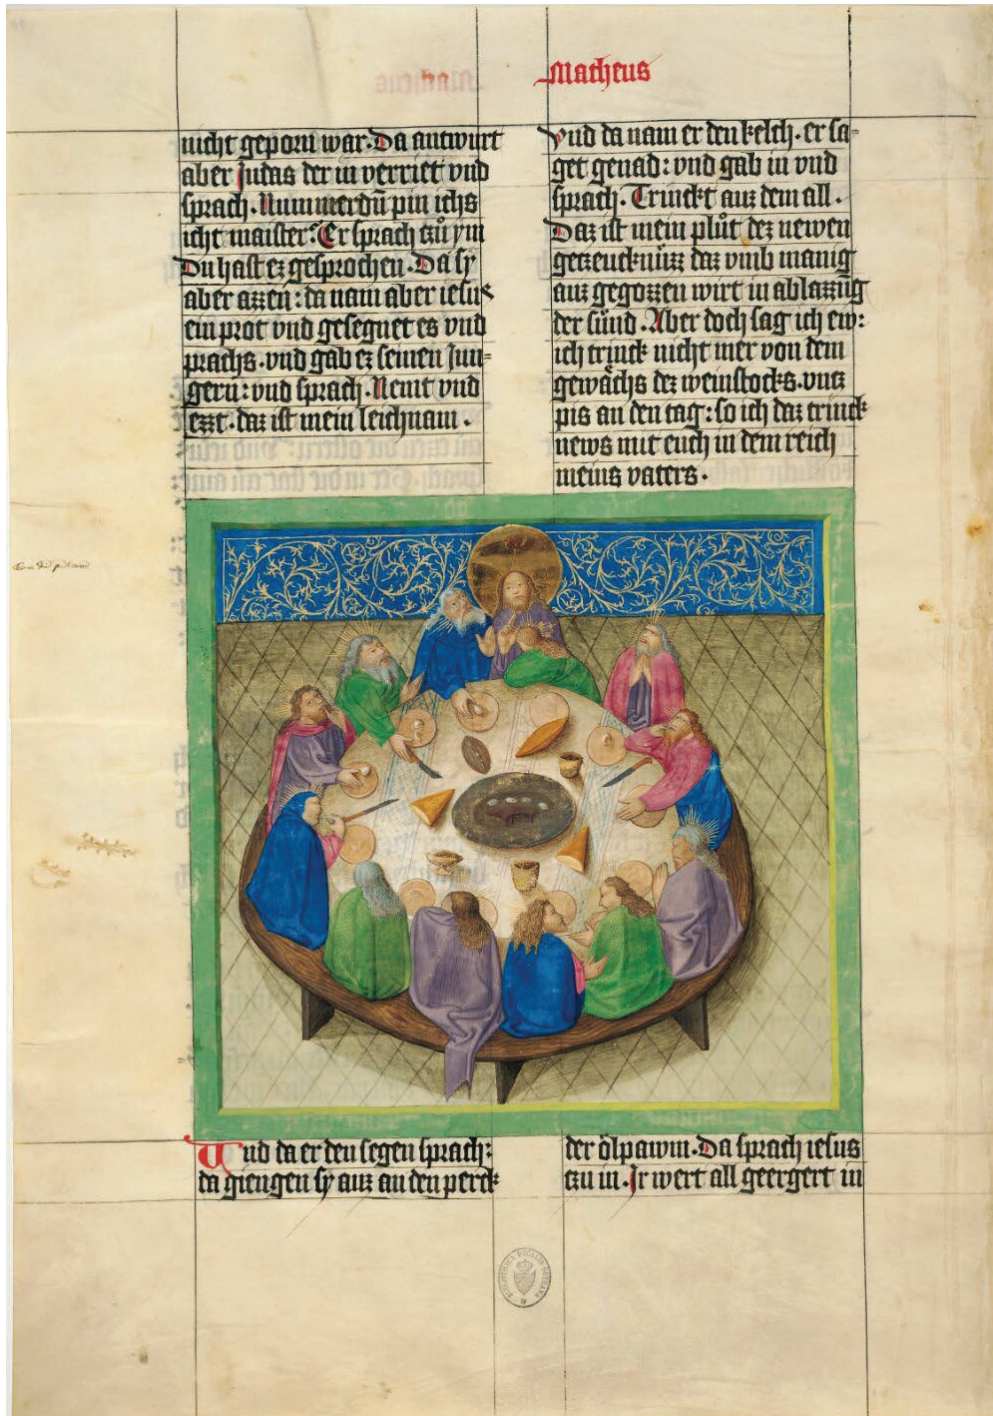 Matheus
nicht geporn war. Da antwurt
aber Judas der in verriet vnd
sprach. Nummerdū pin ichs
icht maister? Er sprach tzů ym
Du hast ez gesprochen. Da sy
aber azzen: da nam aber iesus
ein prot vnd gesegnet es vnd
prachs. vnd gab ez seinen Jun=
gern: vnd sprach. Nemt vnd
ezzt. daz ist mein leichnam.
Vnd da nam er den kelch. er sa=
get genad: vnd gab in vnd
sprach. Trinckt auz dem all.
Daz ist mein plůt dez newen
getzeucknüzz daz vmb manig
auz gegozzen wirt in ablazzūg
der sünd. Aber doch sag ich ew:
ich trinck nicht mer von dem
gewächs dez weinstocks. vntz
pis an den tag: so ich daz trinck
news mit euch in dem reich
meins vaters.
Vnd da er den segen sprach:
da giengen sy auz an den perck
der ölpawm. Da sprach iesus
tzu in. Jr wert all geergert in